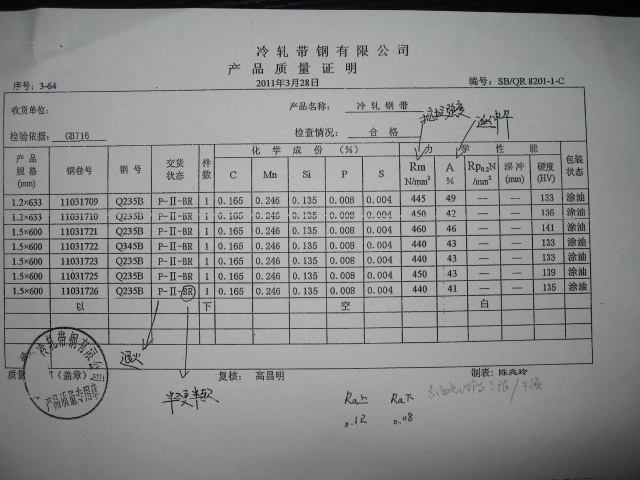 冷轧带钢有限公司
产品质量证明
序号：3-64 2011年3月28日 编号：SB/QR 8201-1-C
收货单位： 产品名称： 冷轧钢带
检验依据： GB716 检查情况： 合格
抗拉强度 延伸率
产品规格(mm) 钢卷号 钢号 交货状态 件数 化学成份(%) 力学性能 包装状态
C Mn Si P S Rm N/mm² A % Rp0.2N/mm² 深冲(mm) 硬度(HV)
1.2×633 11031709 Q235B P-II-BR 1 0.165 0.246 0.135 0.008 0.004 445 49 — — 133 涂油
1.2×633 11031710 Q235B P-II-BR 1 0.165 0.246 0.135 0.008 0.004 450 42 — — 136 涂油
1.5×600 11031721 Q235B P-II-BR 1 0.165 0.246 0.135 0.008 0.004 460 46 — — 141 涂油
1.5×600 11031722 Q345B P-II-BR 1 0.165 0.246 0.135 0.008 0.004 440 43 — — 133 涂油
1.5×600 11031723 Q235B P-II-BR 1 0.165 0.246 0.135 0.008 0.004 440 43 — — 133 涂油
1.5×600 11031725 Q235B P-II-BR 1 0.165 0.246 0.135 0.008 0.004 450 43 — — 139 涂油
1.5×600 11031726 Q235B P-II-BR 1 0.165 0.246 0.135 0.008 0.004 440 41 — — 135 涂油
以 下 空 白
冷轧带钢有限公司
产品质量专用章
退火
质量 (盖章) 复核： 高昌明 制表： 陈兆玲
半硬半软
Ra上 Ra下
0.12 0.08